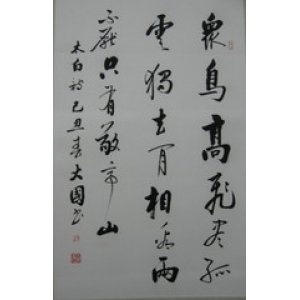 衆鳥高飛盡孤
雲獨去閒相看兩
不厭只有敬亭山
太白詩己丑春大國書